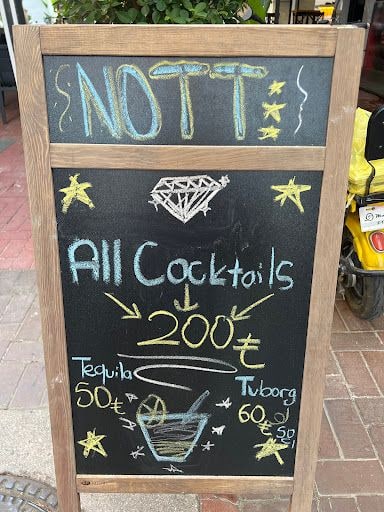 NOTT
All Cocktails
200₺
Tequila
50₺
Tuborg
60₺
50 cl